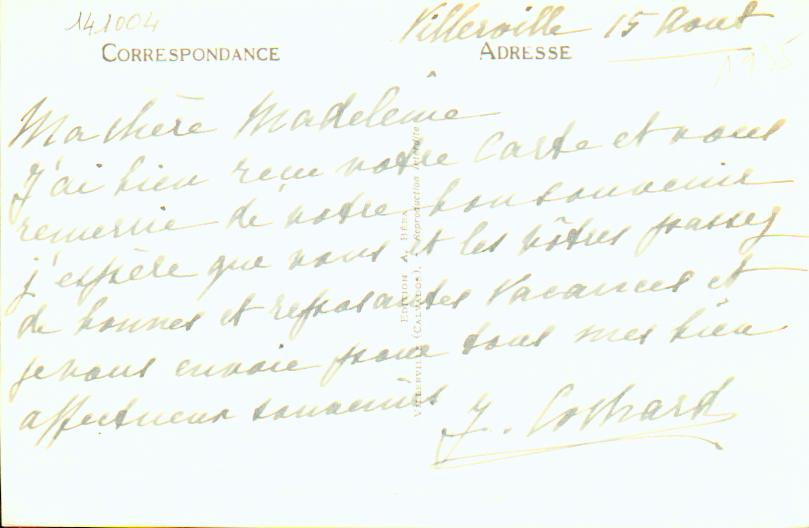 141004
Villerville 15 Aout
1935
CORRESPONDANCE
ADRESSE
Ma chère Madeleine
J'ai bien reçu votre carte et vous
remercie de votre bon souvenir
j'espère que vous et les vôtres passez
de bonnes et reposantes vacances et
je vous envoie pour tous mes bien
affectueux souvenirs
J.
EDITION A. BÉFA
VILLERVILLE (CALVADOS). Reproduction Interdite